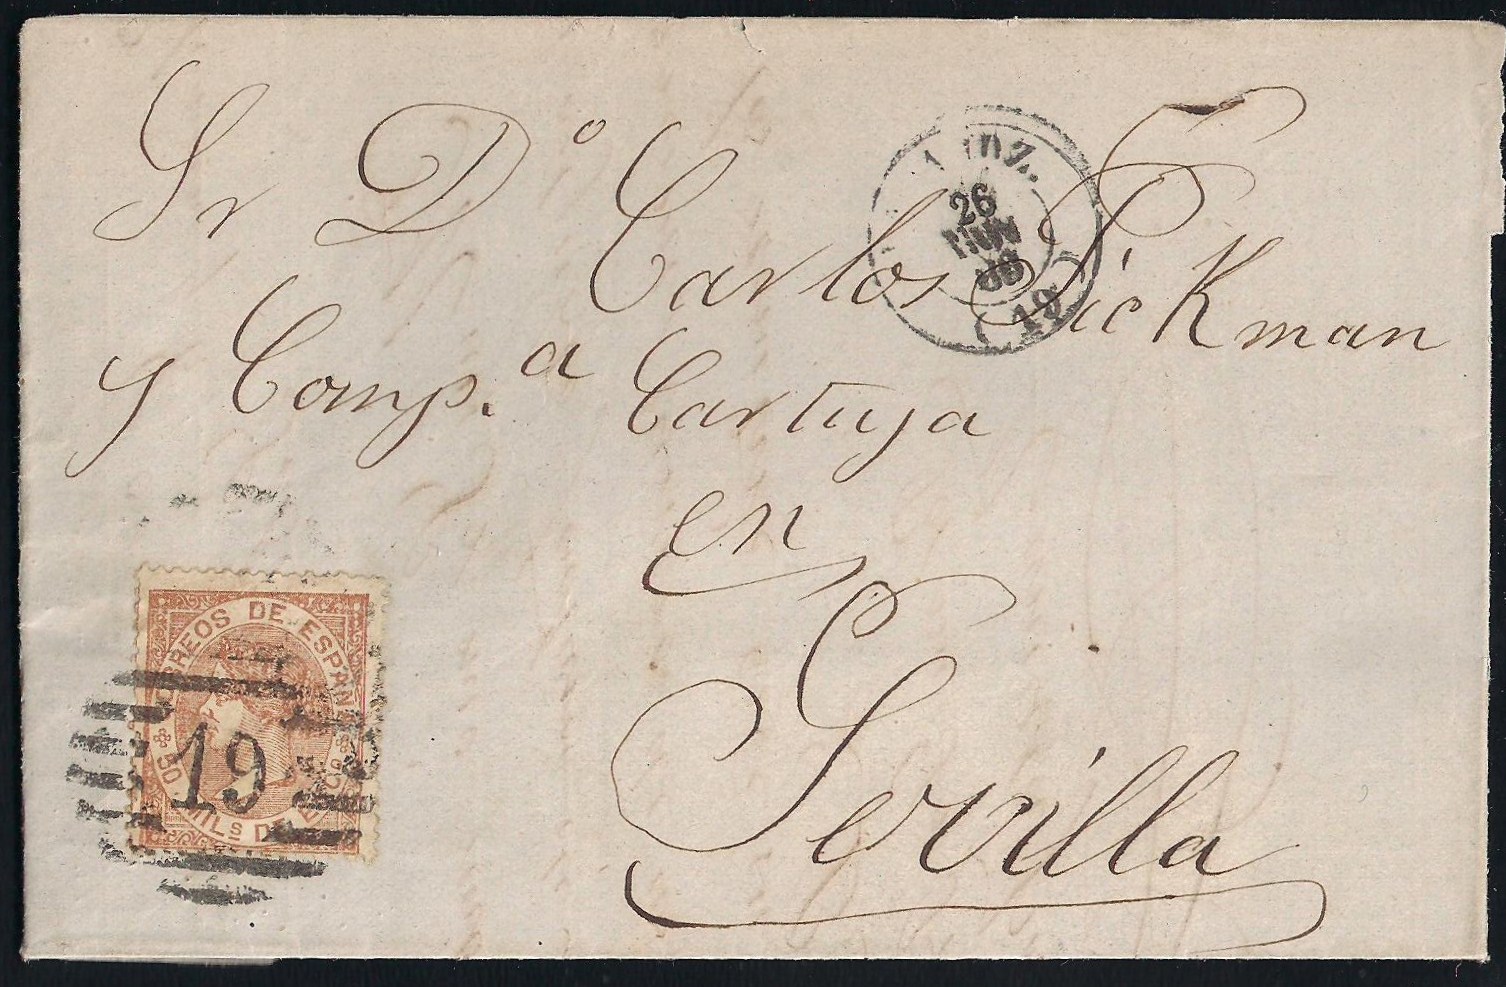 Sr Dº Carlos Pickman
y Comp.ª Cartuja
en
Sevilla
26
(19)
CORREOS DE ESPAÑA
19
50 MILS DE